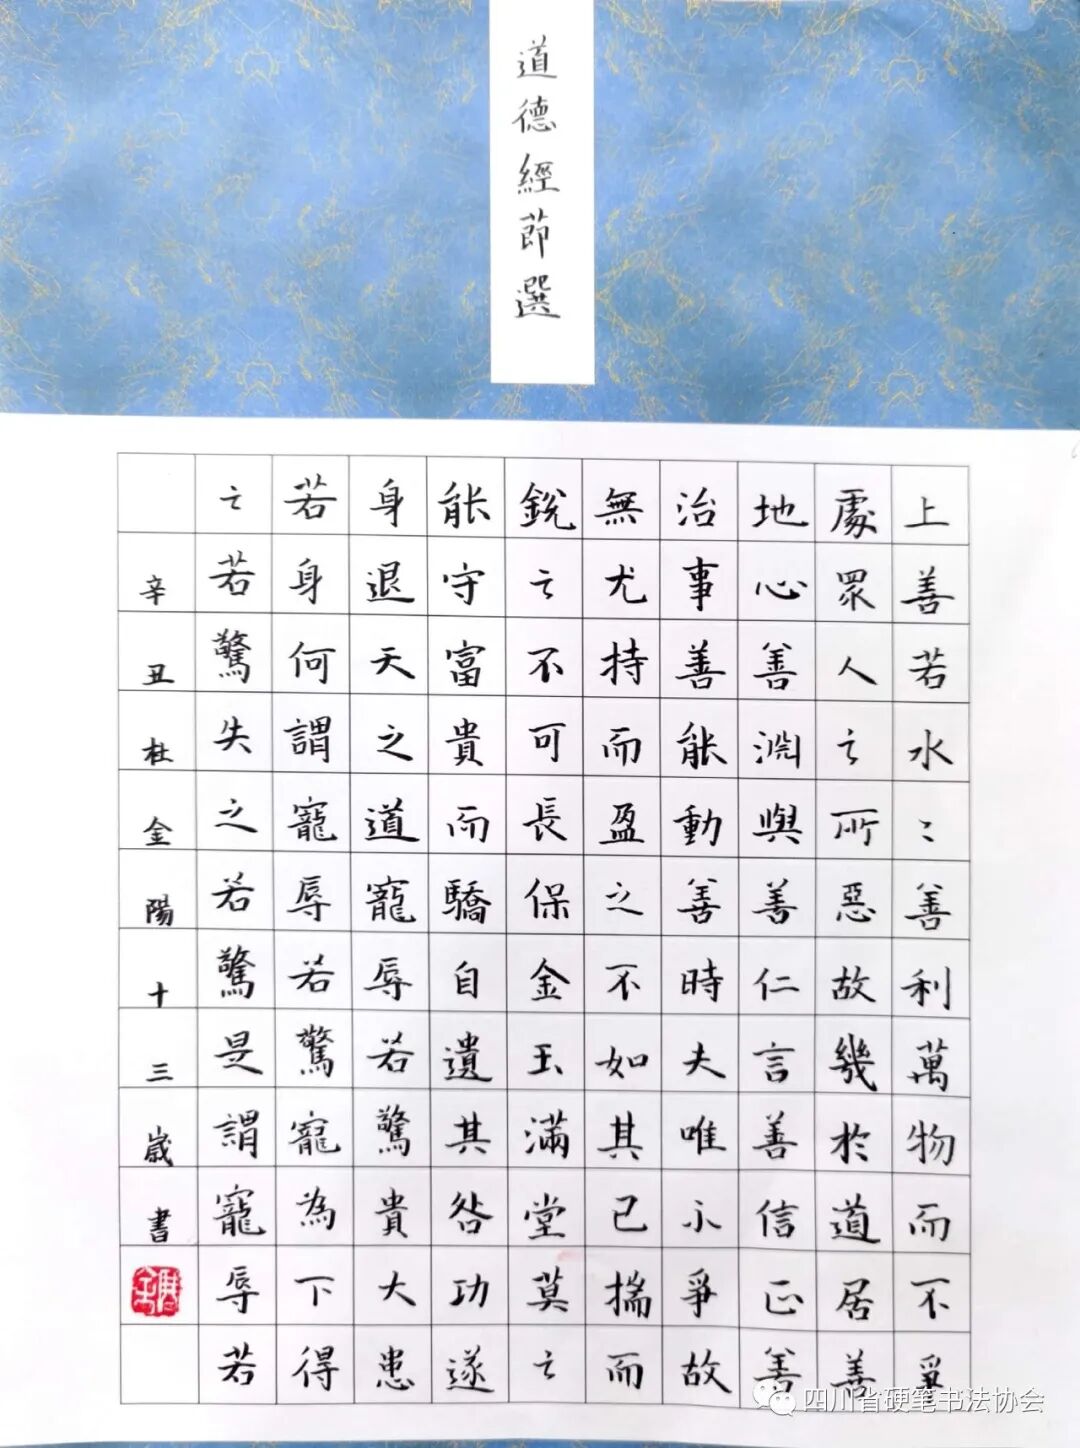 道德經節選
上善若水〻善利萬物而不爭
處眾人之所惡故幾於道居善
地心善淵與善仁言善信正善
治事善能動善時夫唯不爭故
無尤持而盈之不如其已揣而
銳之不可長保金玉滿堂莫之
能守富貴而驕自遺其咎功遂
身退天之道寵辱若驚貴大患
若身何謂寵辱若驚寵為下得
之若驚失之若驚是謂寵辱若
辛丑杜金陽十三歲書
四川省硬笔书法协会